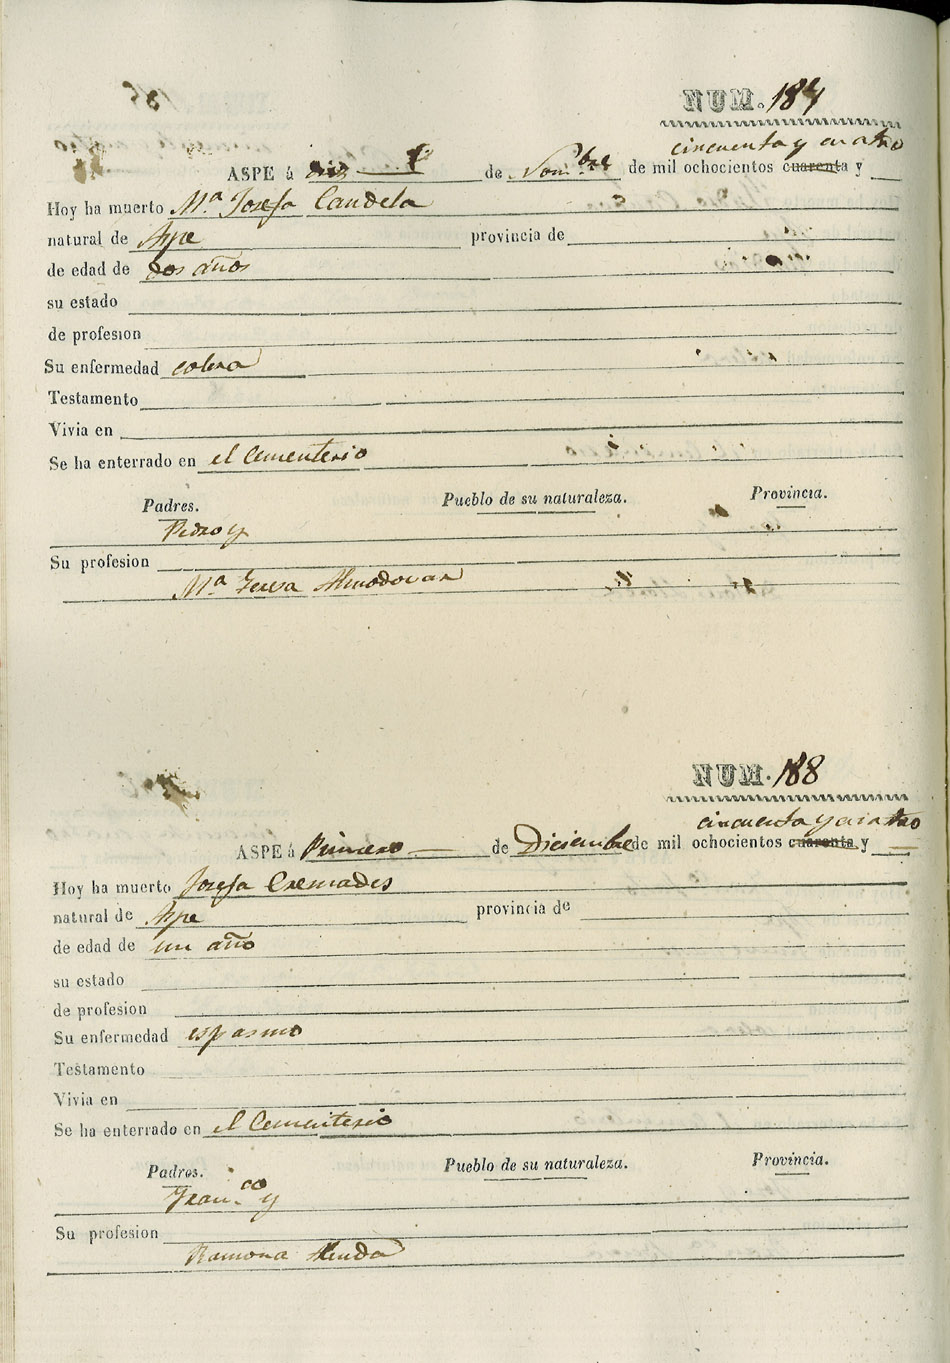 NUM. 187
cincuenta y cuatro
ASPE á diez de Nov.bre de mil ochocientos cuarenta y
Hoy ha muerto M.ª Josefa Candela
natural de Aspe provincia de
de edad de dos años
su estado
de profesion
Su enfermedad colera
Testamento
Vivia en
Se ha enterrado en el Cementerio
Padres. Pueblo de su naturaleza. Provincia.
Pedro y
Su profesion
M.ª Teresa Almodovar
NUM. 188
cincuenta y cuatro
ASPE á Primero de Diciembre de mil ochocientos cuarenta y
Hoy ha muerto Josefa Cremades
natural de Aspe provincia de
de edad de un año
su estado
de profesion
Su enfermedad espasmo
Testamento
Vivia en
Se ha enterrado en el Cementerio
Padres. Pueblo de su naturaleza. Provincia.
Fran.co y
Su profesion
Ramona